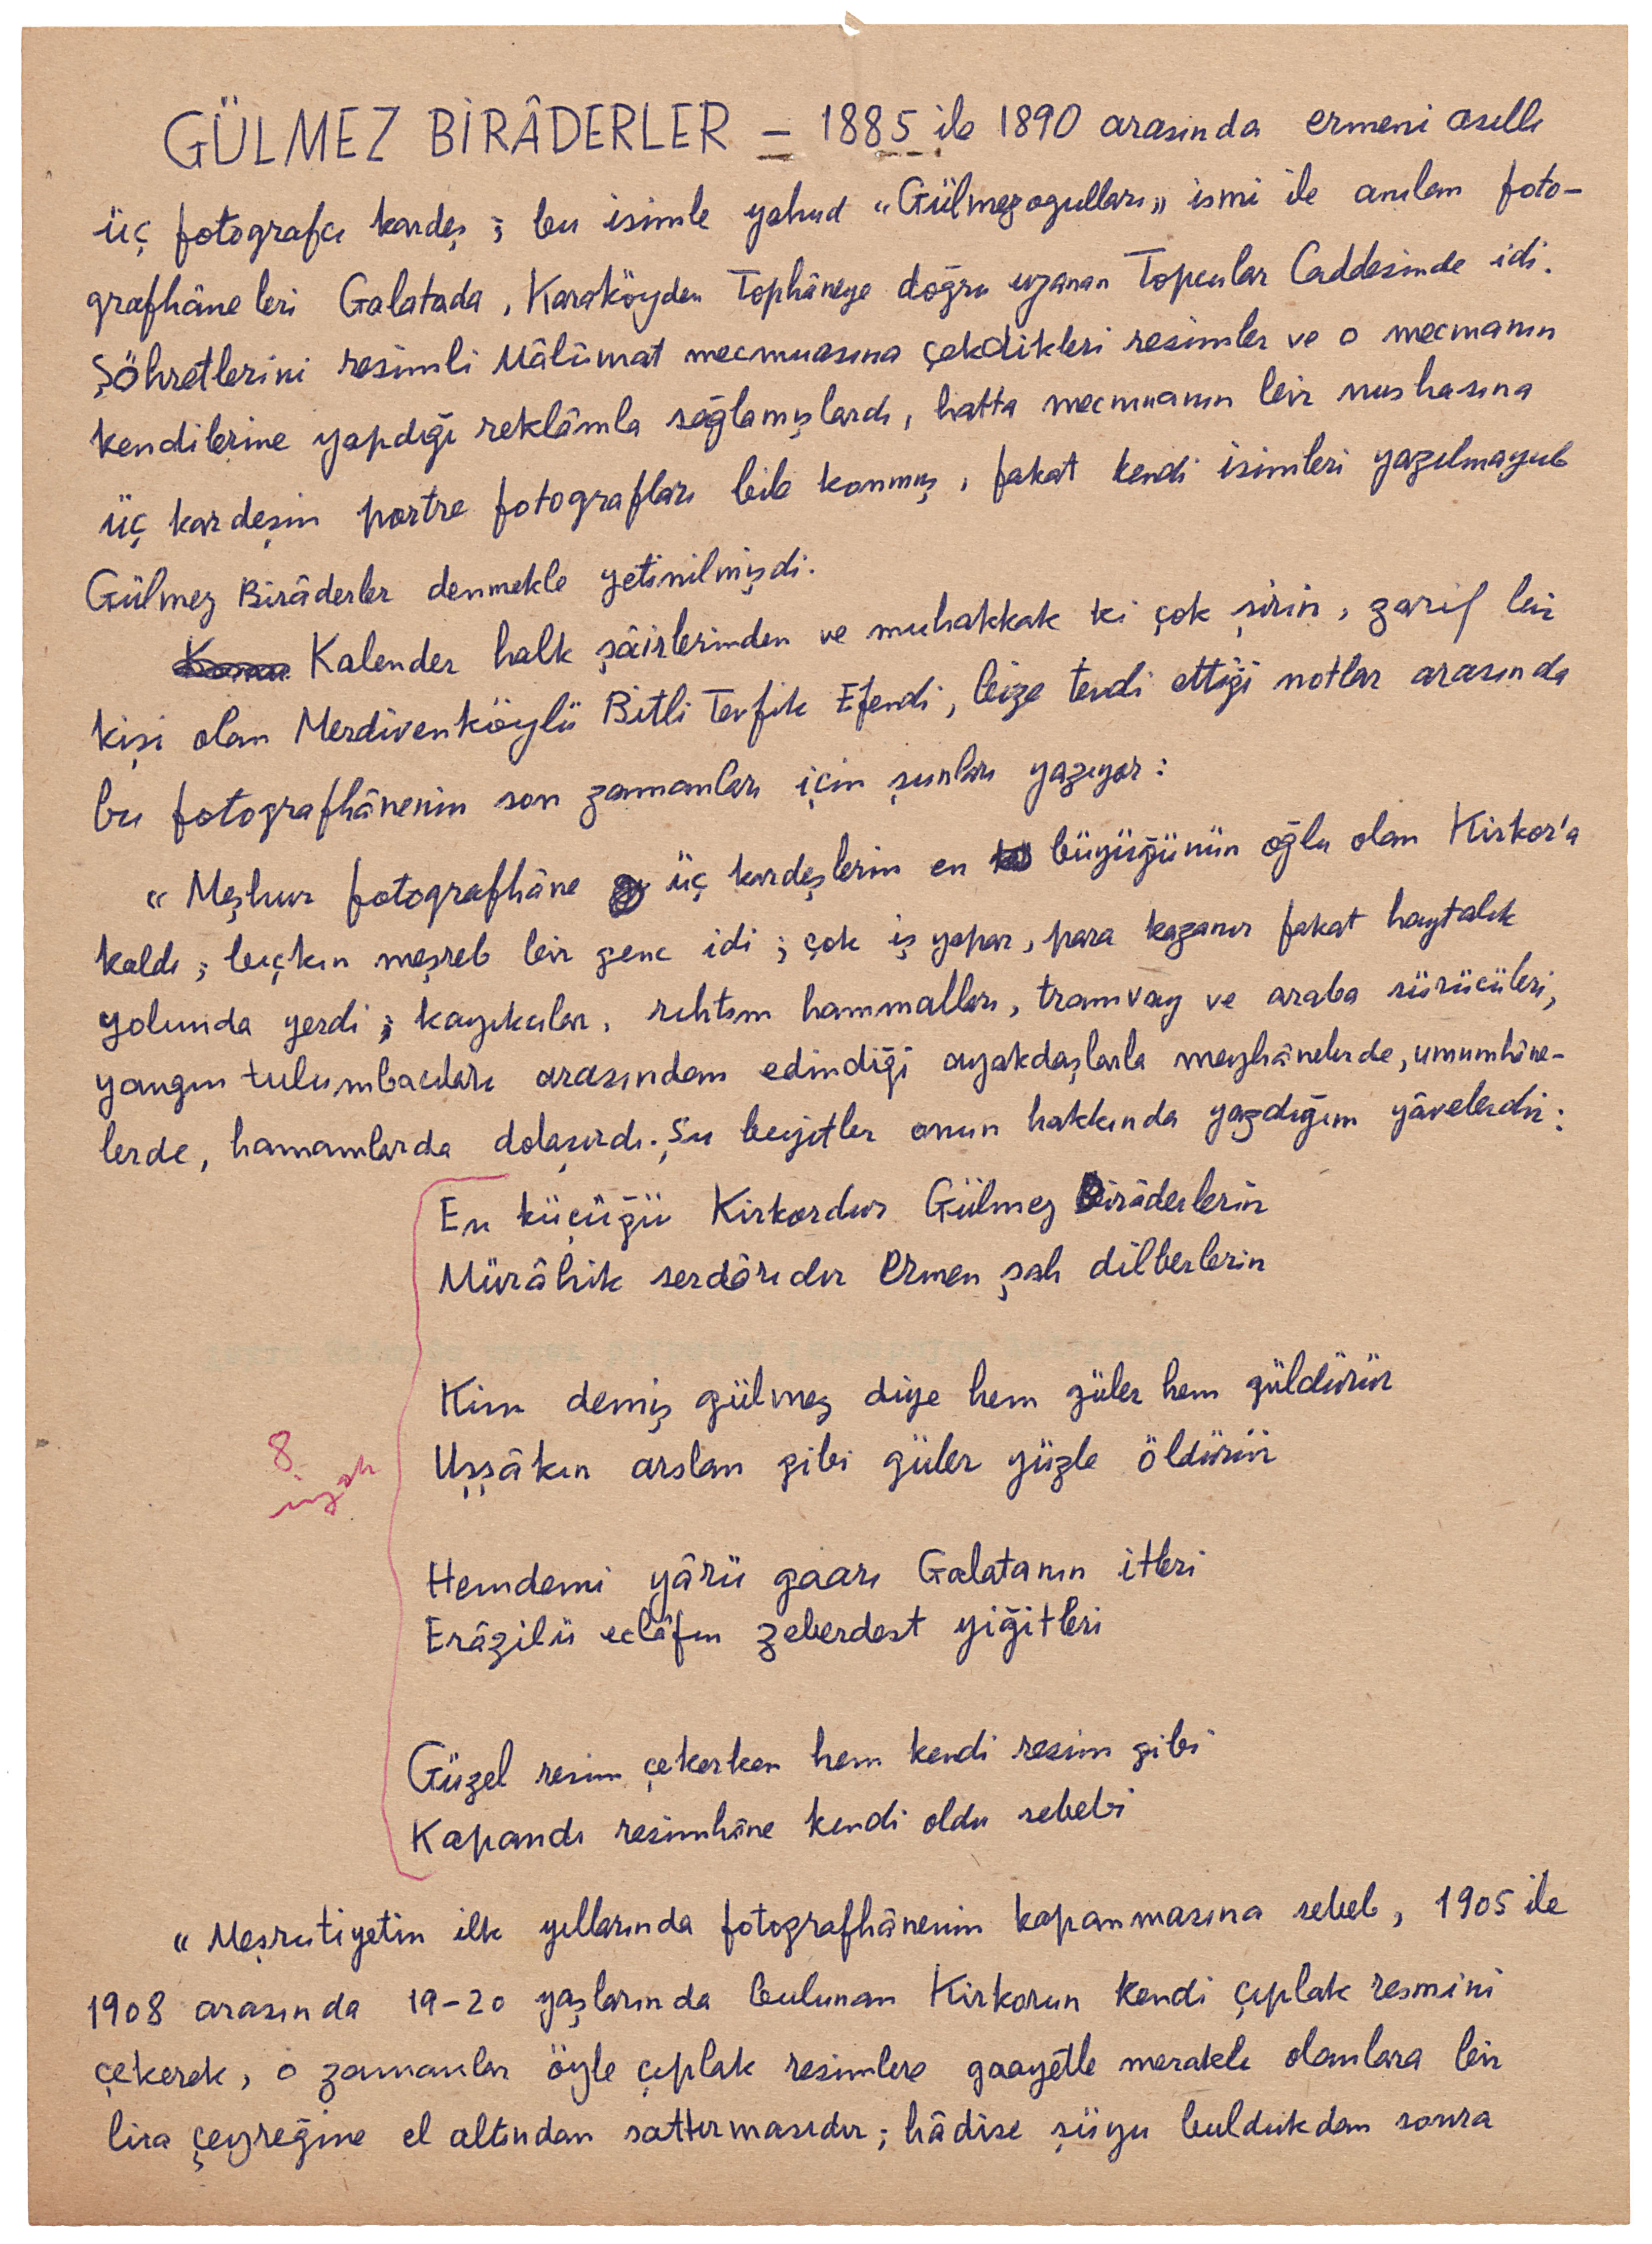 GÜLMEZ BİRÂDERLER — 1885 ile 1890 arasında ermeni asıllı
üç fotografcı kardeş ; bu isimle yahud "Gülmezogulları" ismi ile anılan foto-
grafhâneleri Galatada, Karaköyden Tophâneye doğru uzanan Topcular Caddesinde idi.
Şöhretlerini resimli Mâlûmat mecmuasına çekdikleri resimler ve o mecmanın
kendilerine yapdığı reklâmla sağlamışlardı, hatta mecmuanın bir nushasına
üç kardeşin portre fotografları bile konmuş, fakat kendi isimleri yazılmayub
Gülmez Birâderler denmekle yetinilmişdi.
Kalender halk şâirlerinden ve muhakkak ki çok şirin, zarif bir
kişi olan Merdivenköylü Bitli Tevfik Efendi, bize tevdi ettiği notlar arasında
bu fotografhânenin son zamanları için şunları yazıyor :
"Meşhur fotografhâne üç kardeşlerin en büyüğünün oğlu olan Kirkor'a
kaldı ; bıçkın meşreb bir genc idi ; çok iş yapar, para kazanır fakat haytalık
yolunda yerdi ; kayıkcılar, rıhtım hammalları, tramvay ve araba sürücüleri,
yangın tulumbacıları arasından edindiği ayakdaşlarla meyhânelerde, umumhâne-
lerde, hamamlarda dolaşırdı. Şu beyitler onun hakkında yazdığım yâvelerdir :
En küçüğü Kirkordur Gülmez Birâderlerin
Mürâhik serdârıdır Ermen şah dilberlerin
Kim demiş gülmez diye hem güler hem güldürür
Uşşâkın arslan gibi güler yüzle öldürür
8
Hemdemi yârü gaarı Galatanın itleri
Erâzilü eclâfın zeberdest yiğitleri
Güzel resim çekerken hem kendi resim gibi
Kapandı resimhâne kendi oldu sebebi
"Meşrutiyetin ilk yıllarında fotografhânenin kapanmasına sebeb, 1905 ile
1908 arasında 19-20 yaşlarında bulunan Kirkorun kendi çıplak resmini
çekerek, o zamanlar öyle çıplak resimlere gaayetle meraklı olanlara bir
lira çeyreğine el altından sattırmasıdır ; hâdise şüyu buldukdan sonra